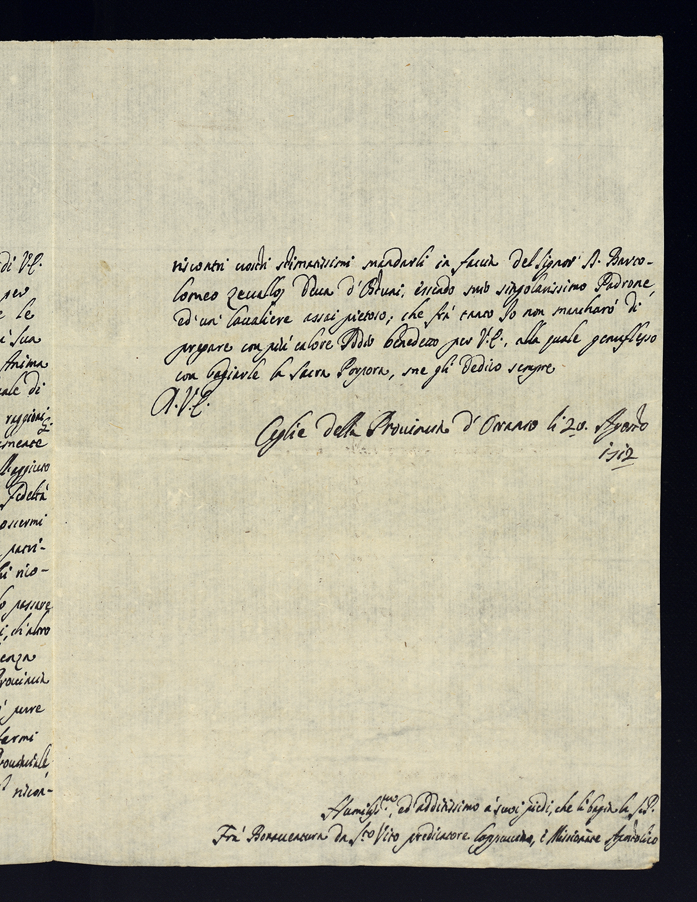 di V.E.
per
e le
i sua
Anima
uale di
raggioni
mente
Fedeltà
oscermi
parti-
hi rico-
o passare
i, ch'altro
enza
Provincia
pure
farmi
Provinciale
ricon-
riscontri vostri stimatissimi mandarli in faccia del Signor D. Barto-
lomeo Zevallos Duca d'Ostuni, essendo mio singolarissimo Padrone,
ed'un Cavaliere assai pietoso; che frà tanto Io non mancharò di
pregare con più calore Iddio benedetto per V.E., alla quale genuflesso
con bagiarle la Sacra Porpora, me gli dedico sempre
D.V.E.
Ceglie della Provincia d'Otranto li 20. Agosto
1712
Humiliss.mo, ed'addittissimo a' suoi piedi, che li bagia la
Frà Bonaventura da S.to Vito predicatore Cappuccino, e Missionare Apostolico